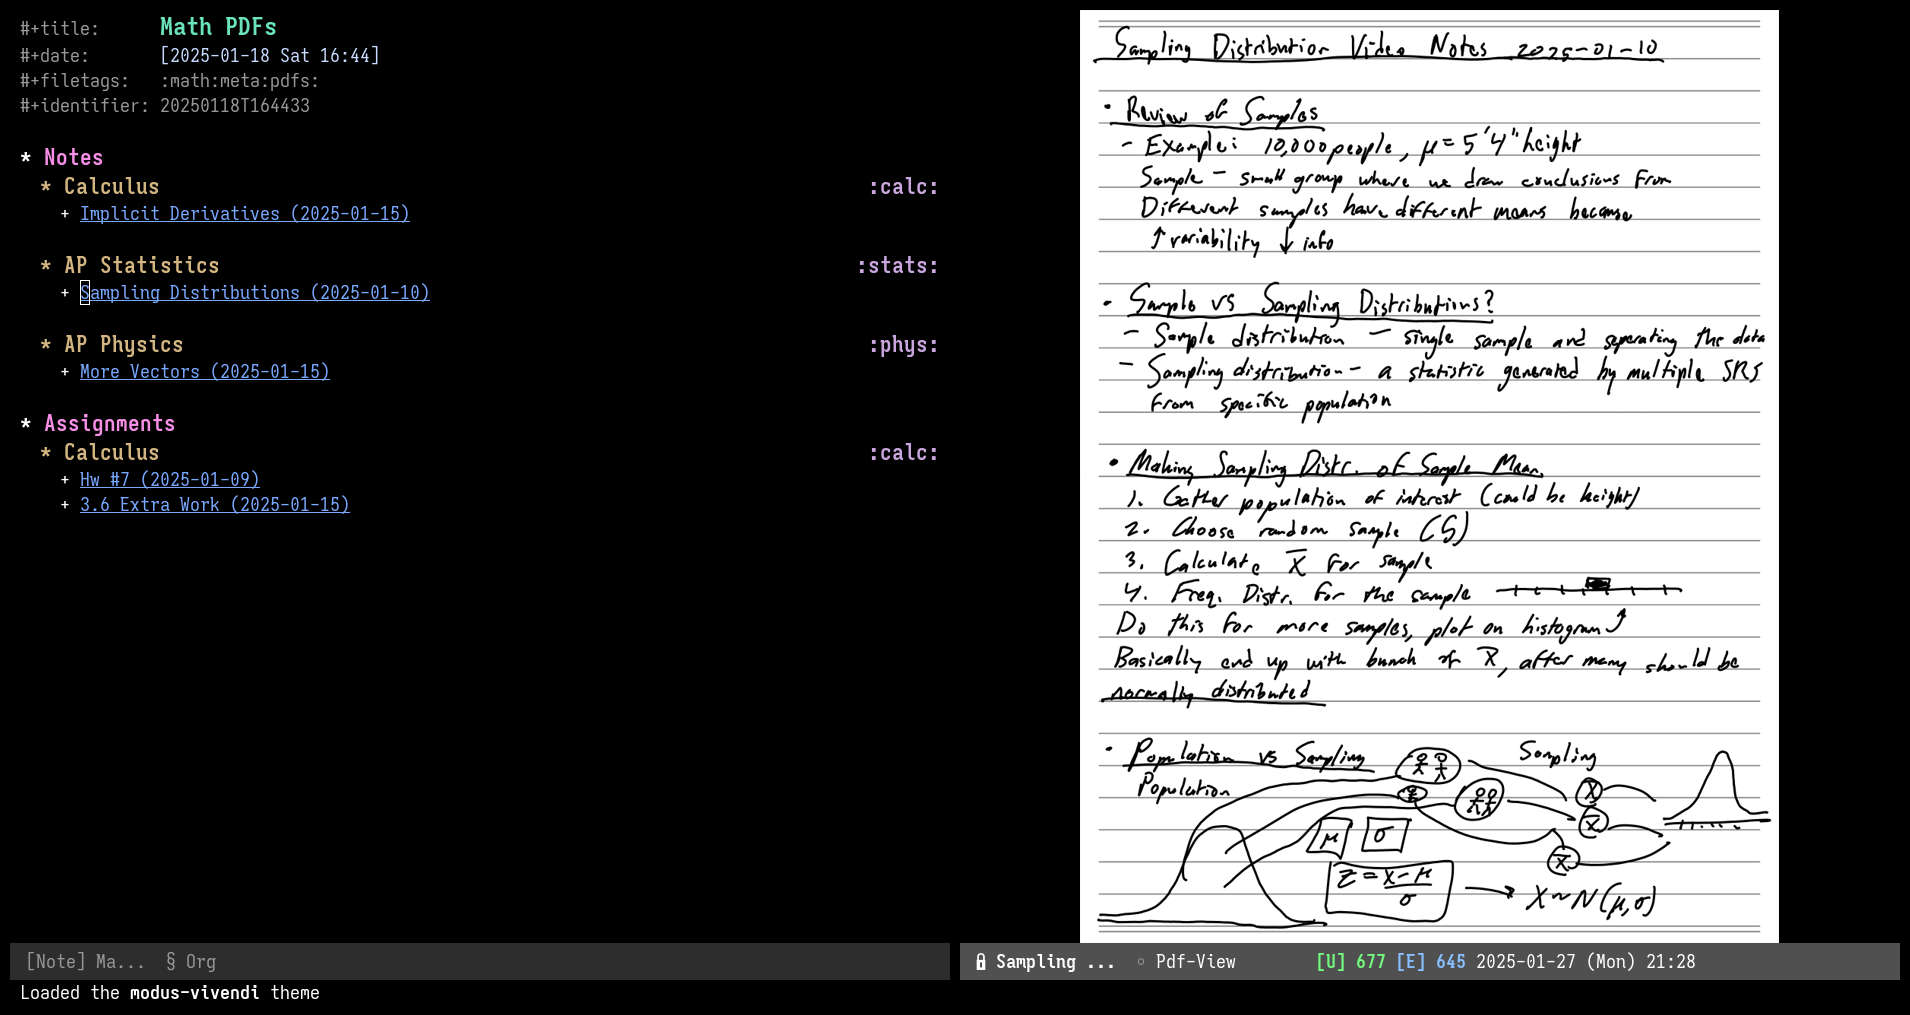 #+title: Math PDFs
#+date: [2025-01-18 Sat 16:44]
#+filetags: :math:meta:pdfs:
#+identifier: 20250118T164433
* Notes
* Calculus :calc:
+ Implicit Derivatives (2025-01-15)
* AP Statistics :stats:
+ Sampling Distributions (2025-01-10)
* AP Physics :phys:
+ More Vectors (2025-01-15)
* Assignments
* Calculus :calc:
+ Hw #7 (2025-01-09)
+ 3.6 Extra Work (2025-01-15)
[Note] Ma... § Org
Loaded the modus-vivendi theme
Sampling Distribution Video Notes 2025-01-10
• Review of Samples
- Example: 10,000 people, μ = 5'4" height
Sample - small group where we draw conclusions from
Different samples have different means because
↑ variability ↓ info
• Sample vs Sampling Distributions?
- Sample distribution - single sample and seperating the data
- Sampling distribution - a statistic generated by multiple SRS
from specific population
• Making Sampling Distr. of Sample Mean
1. Gather population of interest (could be height)
2. Choose random sample (5)
3. Calculate x̅ for sample
4. Freq. Distr. for the sample
Do this for more samples, plot on histogram
Basically end up with bunch of x̅, after many should be
normally distributed
• Population vs Sampling
Population
Sampling
x̅
x̅
x̅
μ σ
z = x-μ/σ → X~N(μ,σ)
Sampling ... ○ Pdf-View [U] 677 [E] 645 2025-01-27 (Mon) 21:28